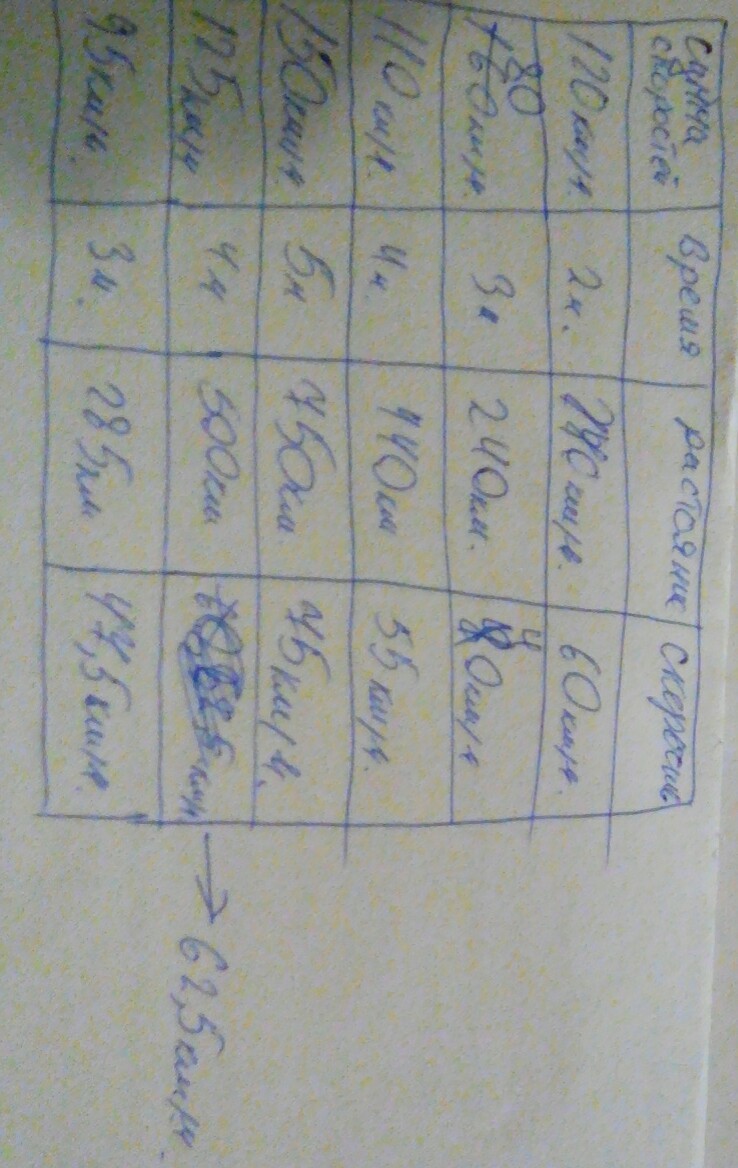 Сумма скоростей Время растояние скорость
120км/ч. 2ч. 240км/ч. 60км/ч.
80км/ч. 3ч 240км. 40км/ч
110км/ч. 4ч. 440км 55км/ч.
150км/ч. 5ч 750км 75км/ч.
125км/ч 4ч 500км → 62,5км/ч.
95км/ч. 3ч. 285км 47,5км/ч.